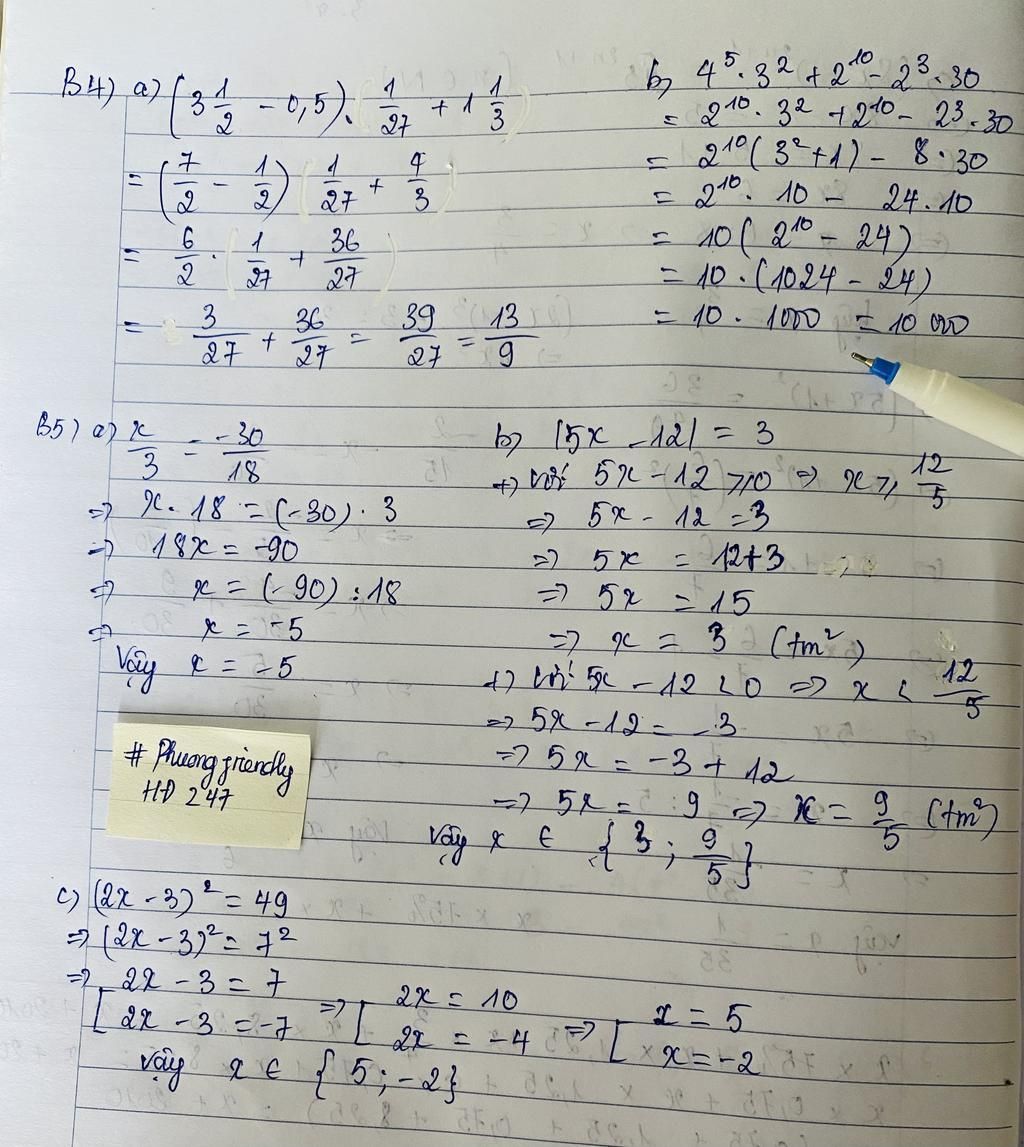 B4) a) (3 1/2 - 0,5). (1/27 + 1 1/3)
= (7/2 - 1/2) (1/27 + 4/3)
= 6/2 . (1/27 + 36/27)
= 3/27 + 36/27 = 39/27 = 13/9
b) 4^5 . 3^2 + 2^10 - 2^3 . 30
= 2^10 . 3^2 + 2^10 - 2^3 . 30
= 2^10 (3^2 + 1) - 8 . 30
= 2^10 . 10 - 24 . 10
= 10 (2^10 - 24)
= 10 . (1024 - 24)
= 10 . 1000 = 10 000
B5) a) x/3 = -30/18
=> x . 18 = (-30) . 3
=> 18x = -90
=> x = (-90) : 18
=> x = -5
Vậy x = -5
b) |5x - 12| = 3
+) với 5x - 12 ≥ 0 => x ≥ 12/5
=> 5x - 12 = 3
=> 5x = 12+3
=> 5x = 15
=> x = 3 (tm²)
+) với 5x - 12 < 0 => x < 12/5
=> 5x - 12 = -3
=> 5x = -3 + 12
=> 5x = 9 => x = 9/5 (tm²)
Vậy x ∈ {3 ; 9/5}
# Phuong friendly
HĐ 247
c) (2x - 3)^2 = 49
=> (2x - 3)^2 = 7^2
=> [ 2x - 3 = 7 => [ 2x = 10 => [ x = 5
2x - 3 = -7 2x = -4 x = -2
Vậy x ∈ {5 ; -2}